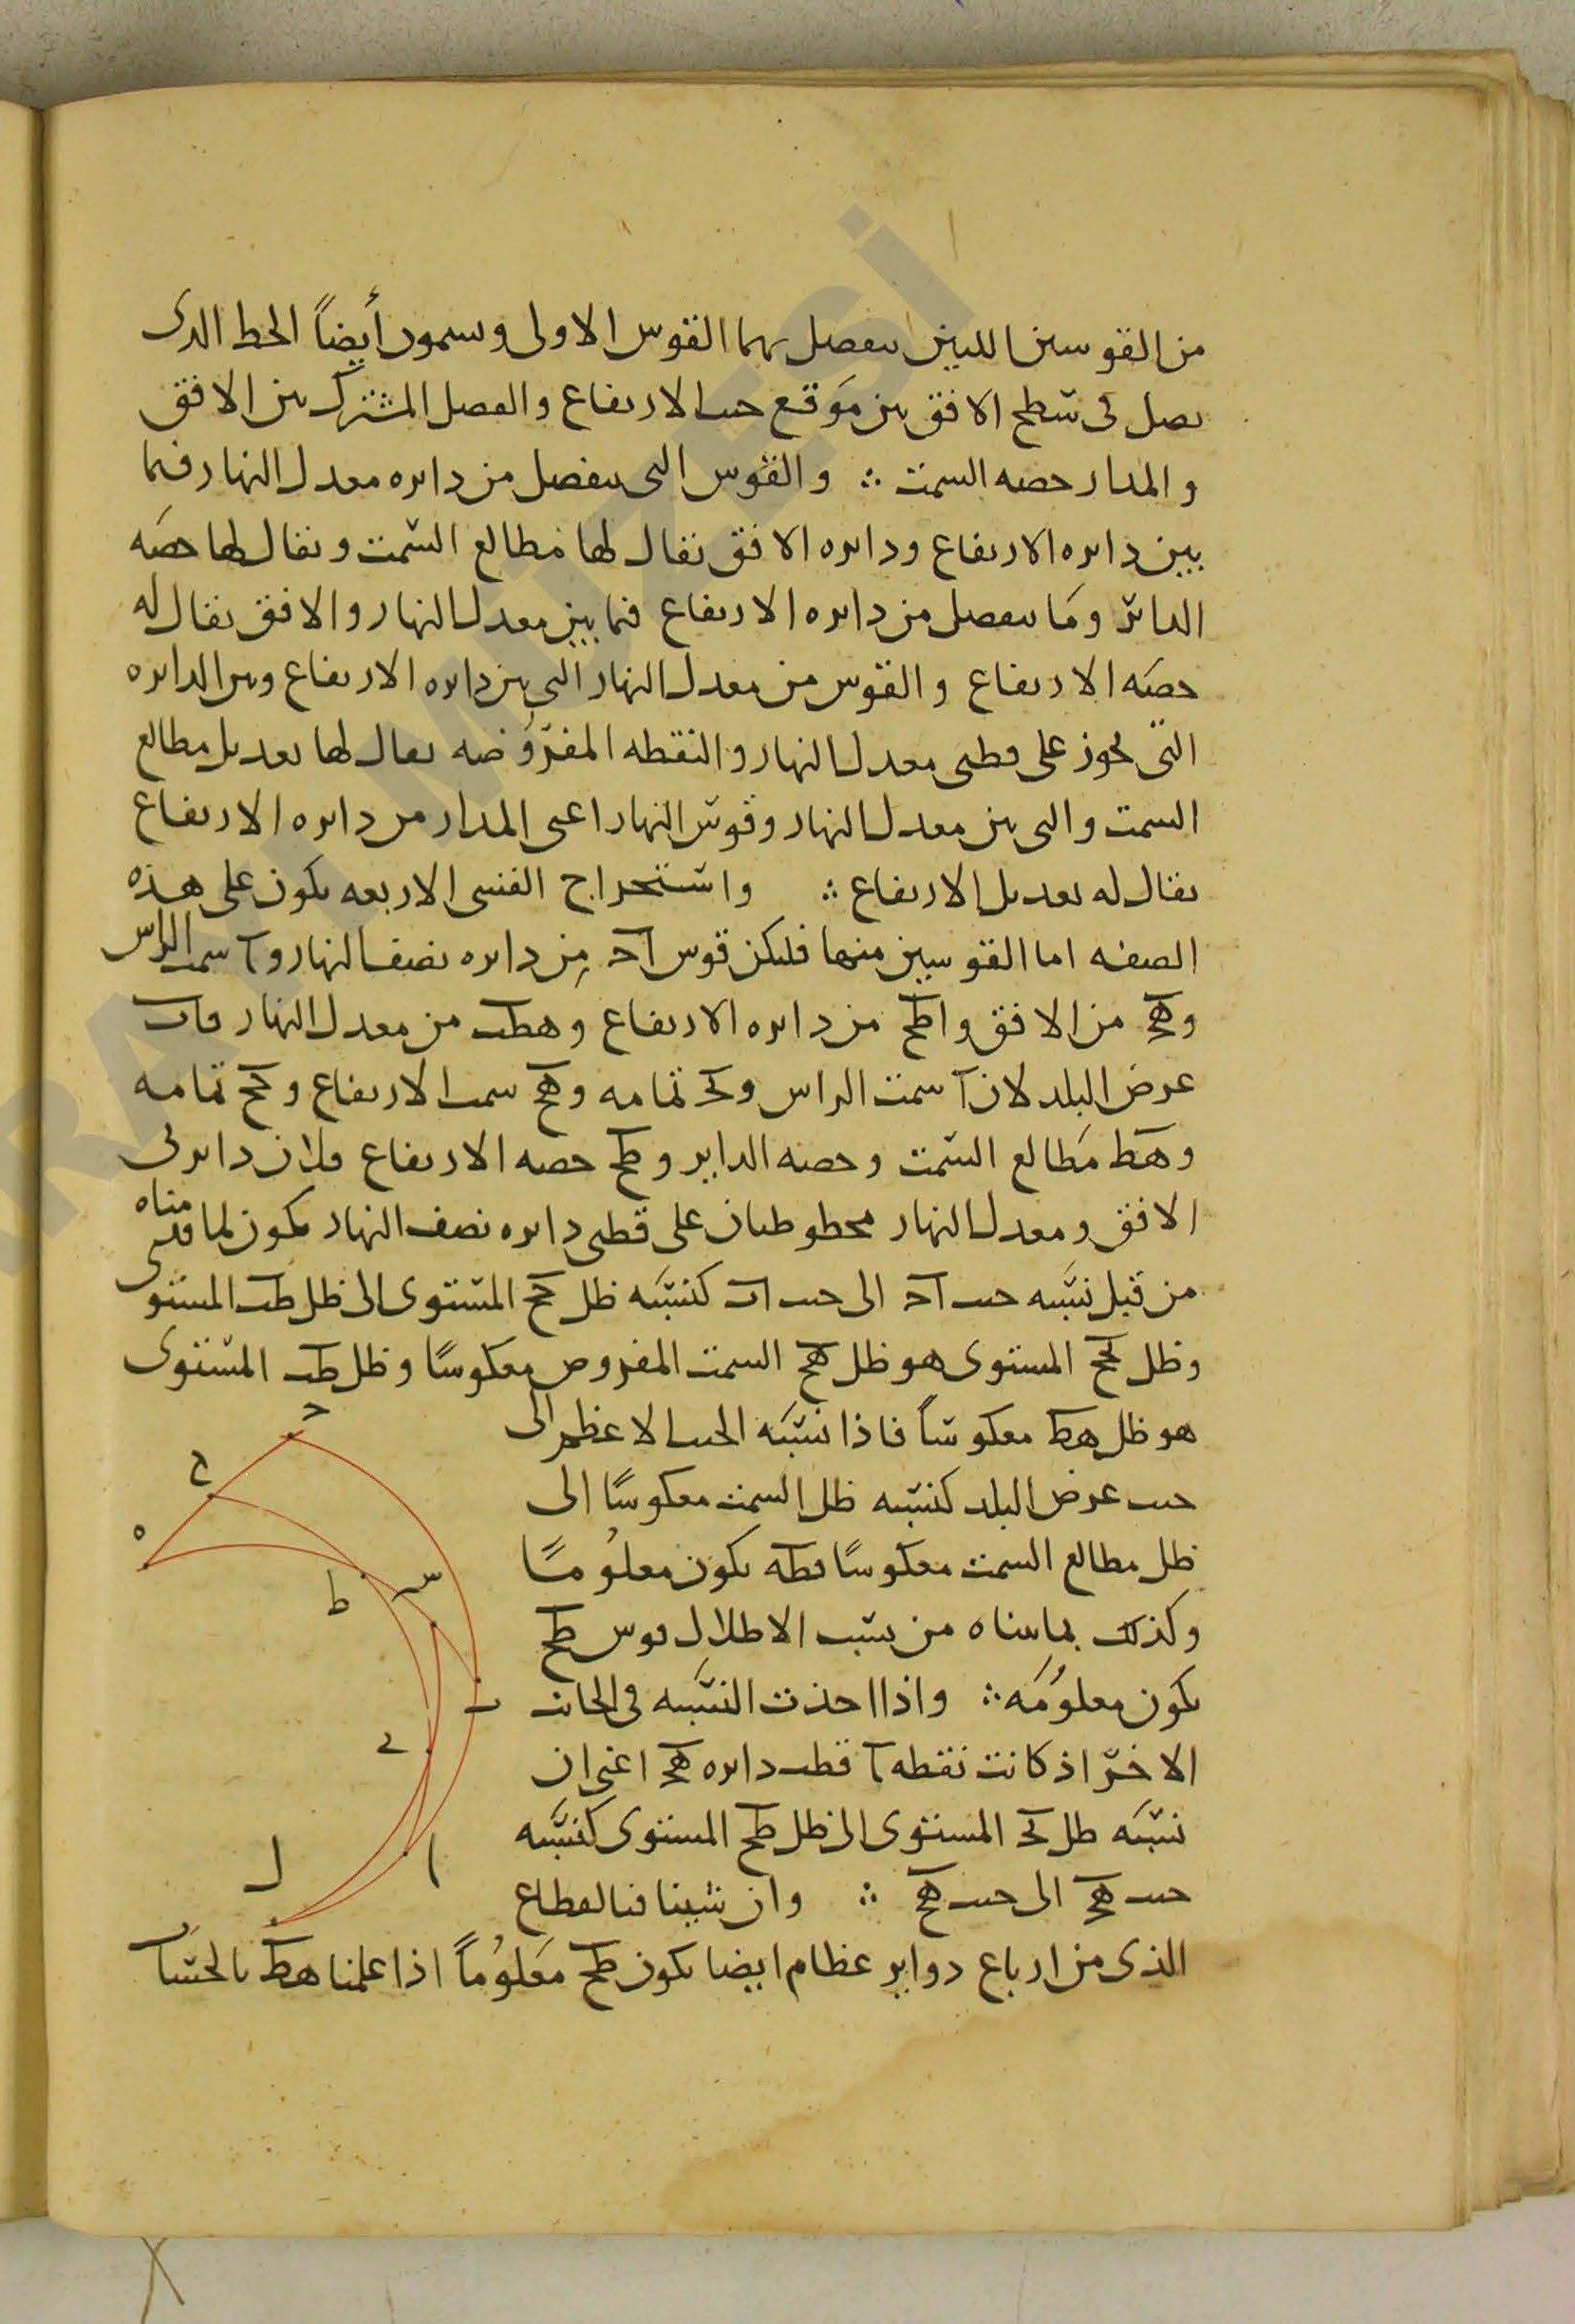 من القوسين اللتين ينفصل بهما القوس الاولى ويسمون أيضاً الخط الذى
يصل فى سطح الافق بين موقع جيب الارتفاع والفصل المشترك بين الافق
والمدار حصه السمت ∴ والقوس التى ينفصل من دايره معدل النهار فيما
بين دايره الارتفاع ودايره الافق يقال لها مطالع السمت ويقال لها حصه
الدائر وما ينفصل من دايره الارتفاع فيما بين معدل النهار والافق يقال له
حصه الارتفاع والقوس من معدل النهار التى بين دايره الارتفاع وبين الدايره
التى تجوز على قطبى معدل النهار والنقطه المفروضه يقال لها تعديل مطالع
السمت والتى بين معدل النهار وقوس النهار اعنى المدار من دايره الارتفاع
يقال له تعديل الارتفاع ∴ واستخراج القسى الاربعه يكون على هذه
الصفه اما القوسين منها فليكن قوس اد من دايره نصف النهار وا سمت الراس
وهحد من الافق واطح من دايره الارتفاع وهطب من معدل النهار فاب
عرض البلد لان ا سمت الراس وبد تمامه وهح سمت الارتفاع وحد تمامه
وهط مطالع السمت وحصه الداير وطح حصه الارتفاع فلان دايرتى
الافق ومعدل النهار مخطوطتان على قطبى دايره نصف النهار يكون لما قدمناه
من قبل نسبه جيب اد الى جيب اب كنسبه ظل دح المستوى الى ظل طب المستوى
وظل دح المستوى هو ظل هح السمت المفروض معكوسًا وظل طب المستوى
هو ظل هط معكوساً فاذا نسبه الجيب الاعظم الى
جيب عرض البلد كنسبه ظل السمت معكوسًا الى
ظل مطالع السمت معكوسًا فطه يكون معلومًا
وكذلك بما بيناه من نسب الاظلال قوس طح
يكون معلومه ∴ واذا اخذت النسبه فى الجانب
الاخر اذ كانت نقطه ا قطب دايره هد اعنى ان
نسبه ظل بد المستوى الى ظل طح المستوى كنسبه
جيب هد الى جيب هح ∴ وان شينا فبالقطاع
الذى من ارباع دواير عظام ايضا يكون طح معلوماً اذا علمنا هط بالحساب
د
ح
ه
ط
س
ب
ے
ا
ل